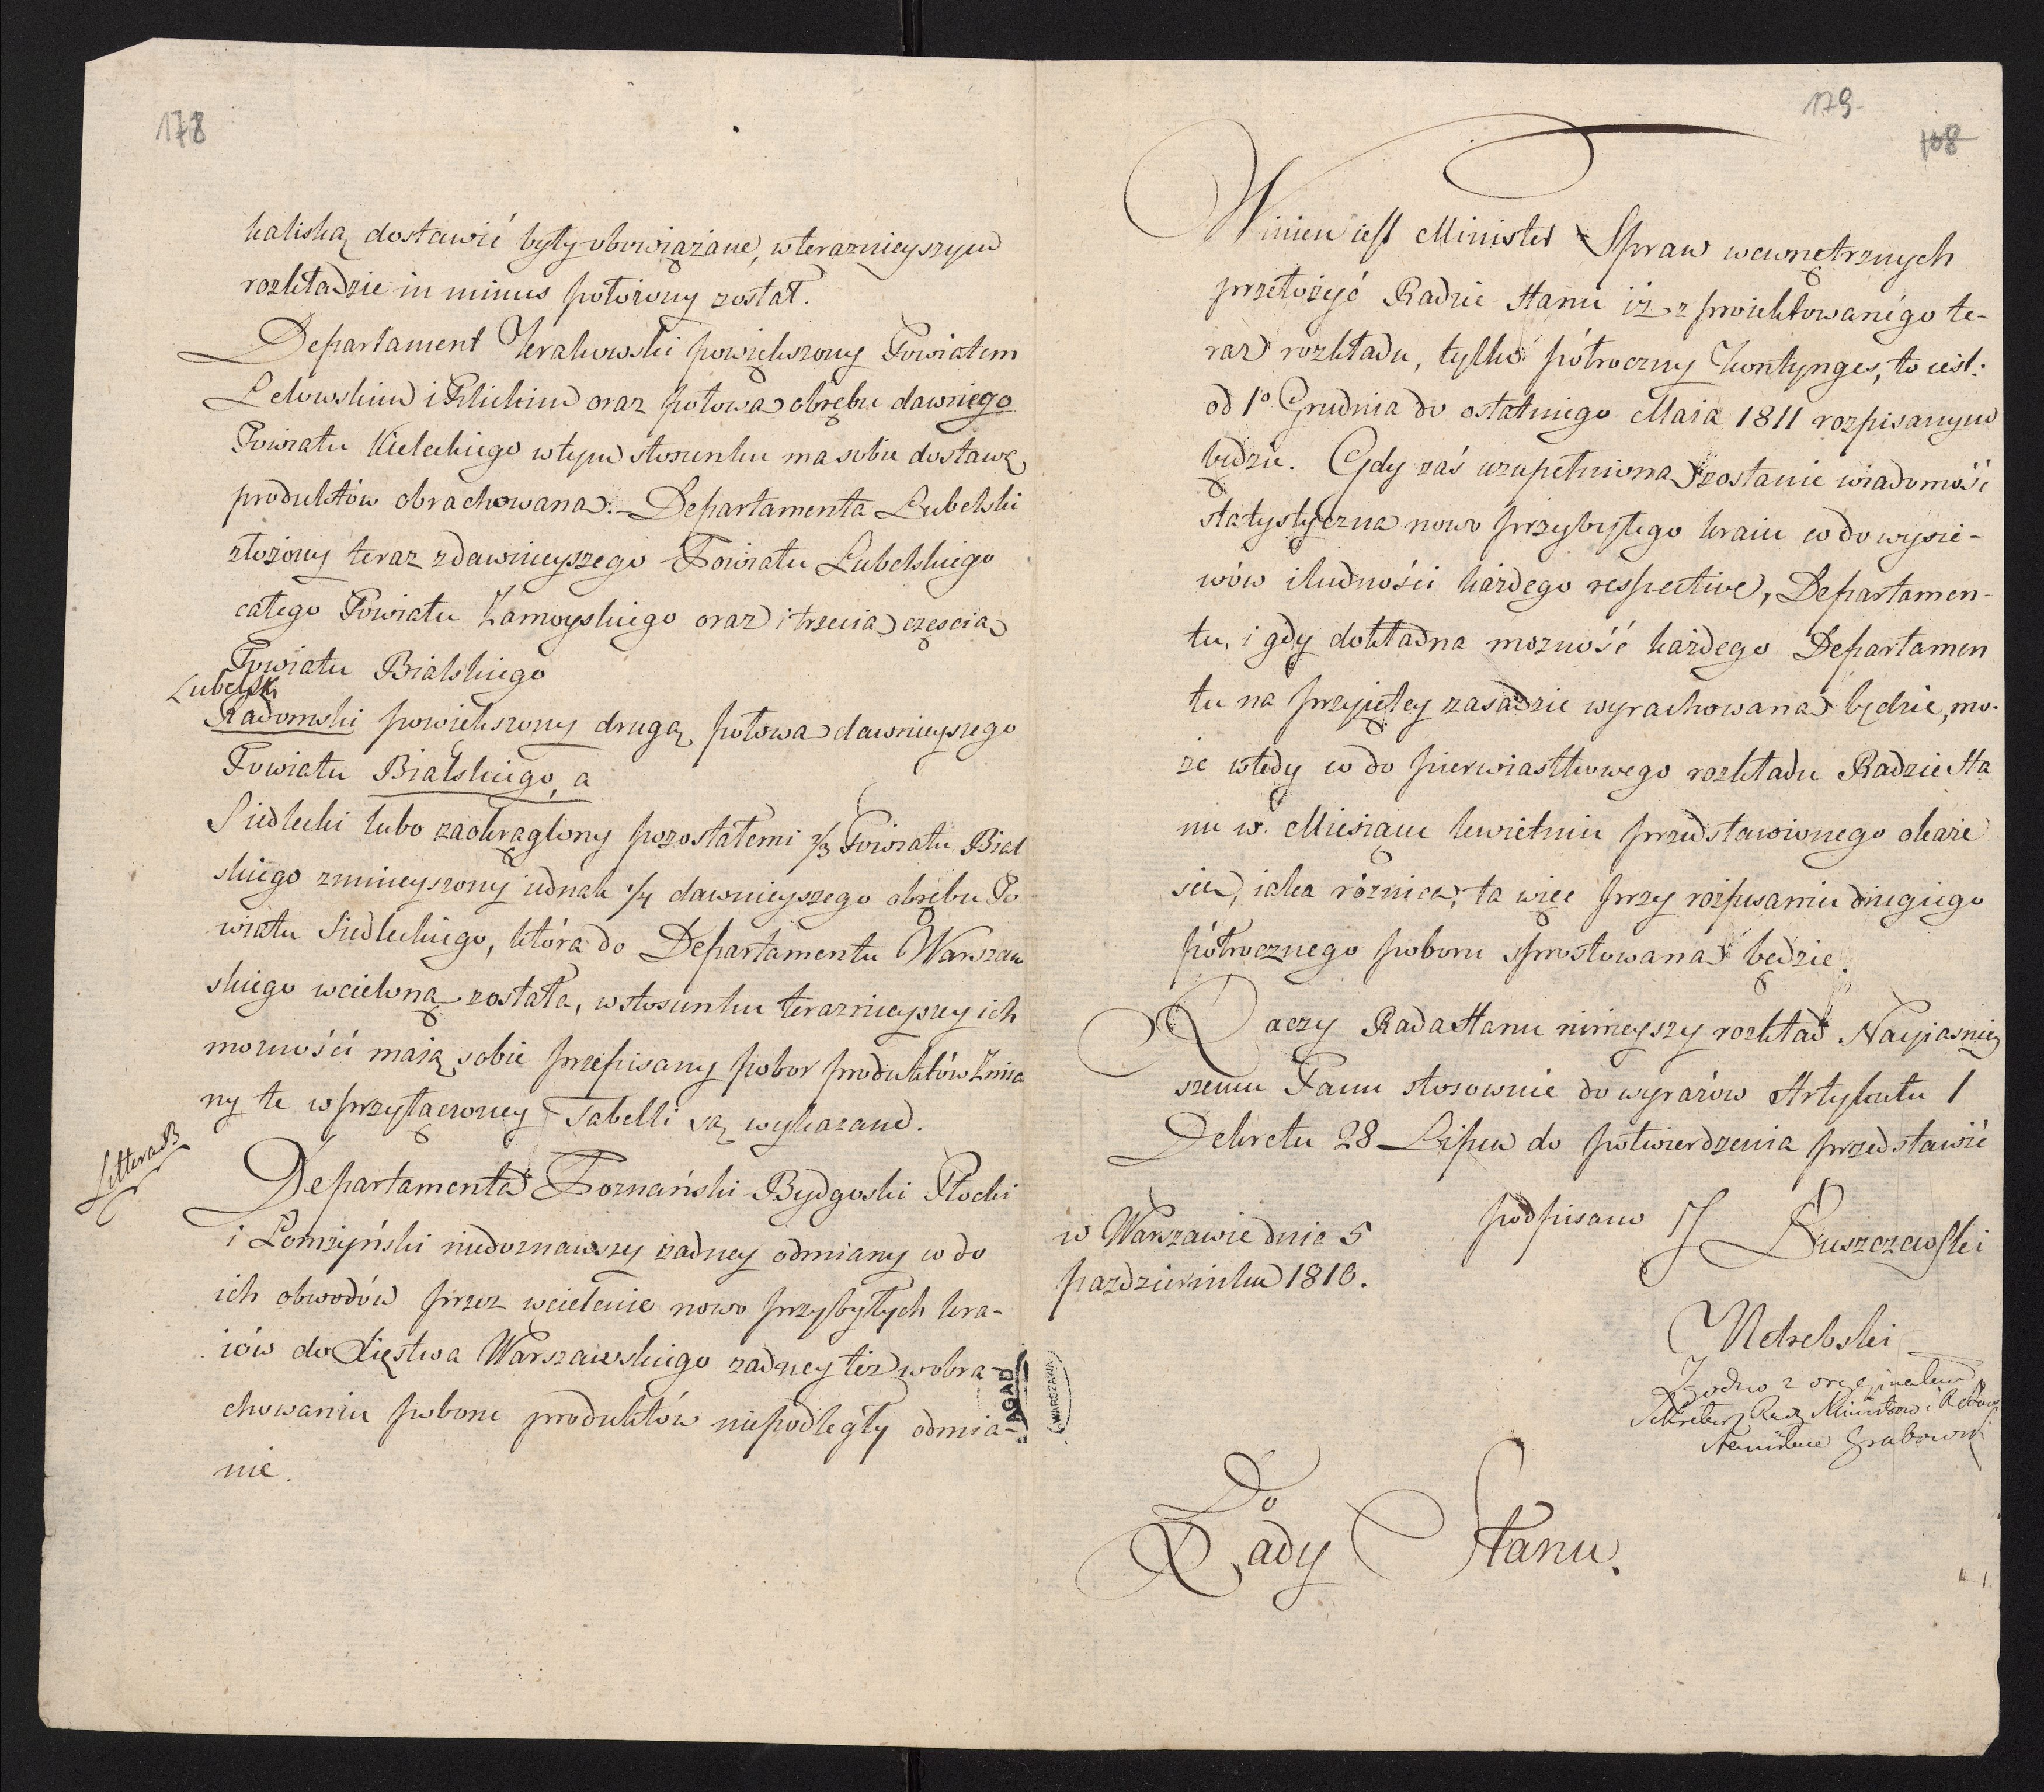 178
kaliską dostawić były obowiązane, w teraznieyszym
rozkładzie in minus położony został.
Departament Krakowski powiększony Powiatem
Lelowskim i Pilickim oraz połową obrębu dawnego
Powiatu Kieleckiego w tym stosunku ma sobie dostawę
produktów obrachowaną. Departamenta Lubelski
złożony teraz z dawnieyszego Powiatu Lubelskiego
całego Powiatu Zamoyskiego oraz i trzecią częścią
Powiatu Bialskiego
Lubelsk
Radomski powiększony drugą połową dawnieyszego
Powiatu Bialskiego, a
Siedlecki lubo zaokrąglony pozostałemi 2/3 Powiatu Bial
skiego zmnieyszony iednak 1/4 dawnieyszego obrębu Po
wiatu Siedleckiego, która do Departamentu Warszaw
skiego wcieloną została, w stosunku teraznieyszey ich
możności maią sobie przepisany pobor produktów Zmia
ny te w przyłączoney Tabelli są wykazane.
Littera B
Departamenta Poznański Bydgoski Płocki
i Łomżyński niedoznawszy żadney odmiany co do
ich obwodów przez wcielenie nowo przybyłych kra-
iów do Xięstwa Warszawskiego żadney też w obra-
chowaniu poboru produktów niepodległy odmia-
nie.
AGAD
WARSZAWA
179
168
Winien iest Minister Spraw wewnętrznych
przełożyć Radzie Stanu iż z proiektowanego te-
raz rozkładu, tylko półroczny Kontynges, to iest:
od 1o Grudnia do ostatniego Maia 1811 rozpisanym
będzie. Gdy zaś uzupełniona zostanie wiadomość
statystyczna nowo przybyłego kraiu co do wysie-
wów i ludności każdego respective, Departamen-
tu, i gdy dokładna możność każdego Departamen
tu na przyjętey zasadzie wyrachowaną będzie, mo-
że wtedy co do pierwiastkowego rozkładu Radzie Sta
nu w. Miesiącu kwietniu przedstawionego okaże
się, iaka różnica; ta więc przy rozpisaniu drugiego
półrocznego poboru sprostowaną będzie.
Raczy Rada Stanu ninieyszy rozkład Nayiaśniey
szemu Panu stosownie do wyrazów Artykułu 1
Dekretu 28 Lipca do potwierdzenia przedstawić
w Warszawie dnia 5
pazdziernika 1810.
podpisano J Łuszczewski
Netrebski
Zgodno z oryginałem
Sekretarz Rady Ministrow i R Stanu
Stanisław Grabowski
Do
Rady Stanu.